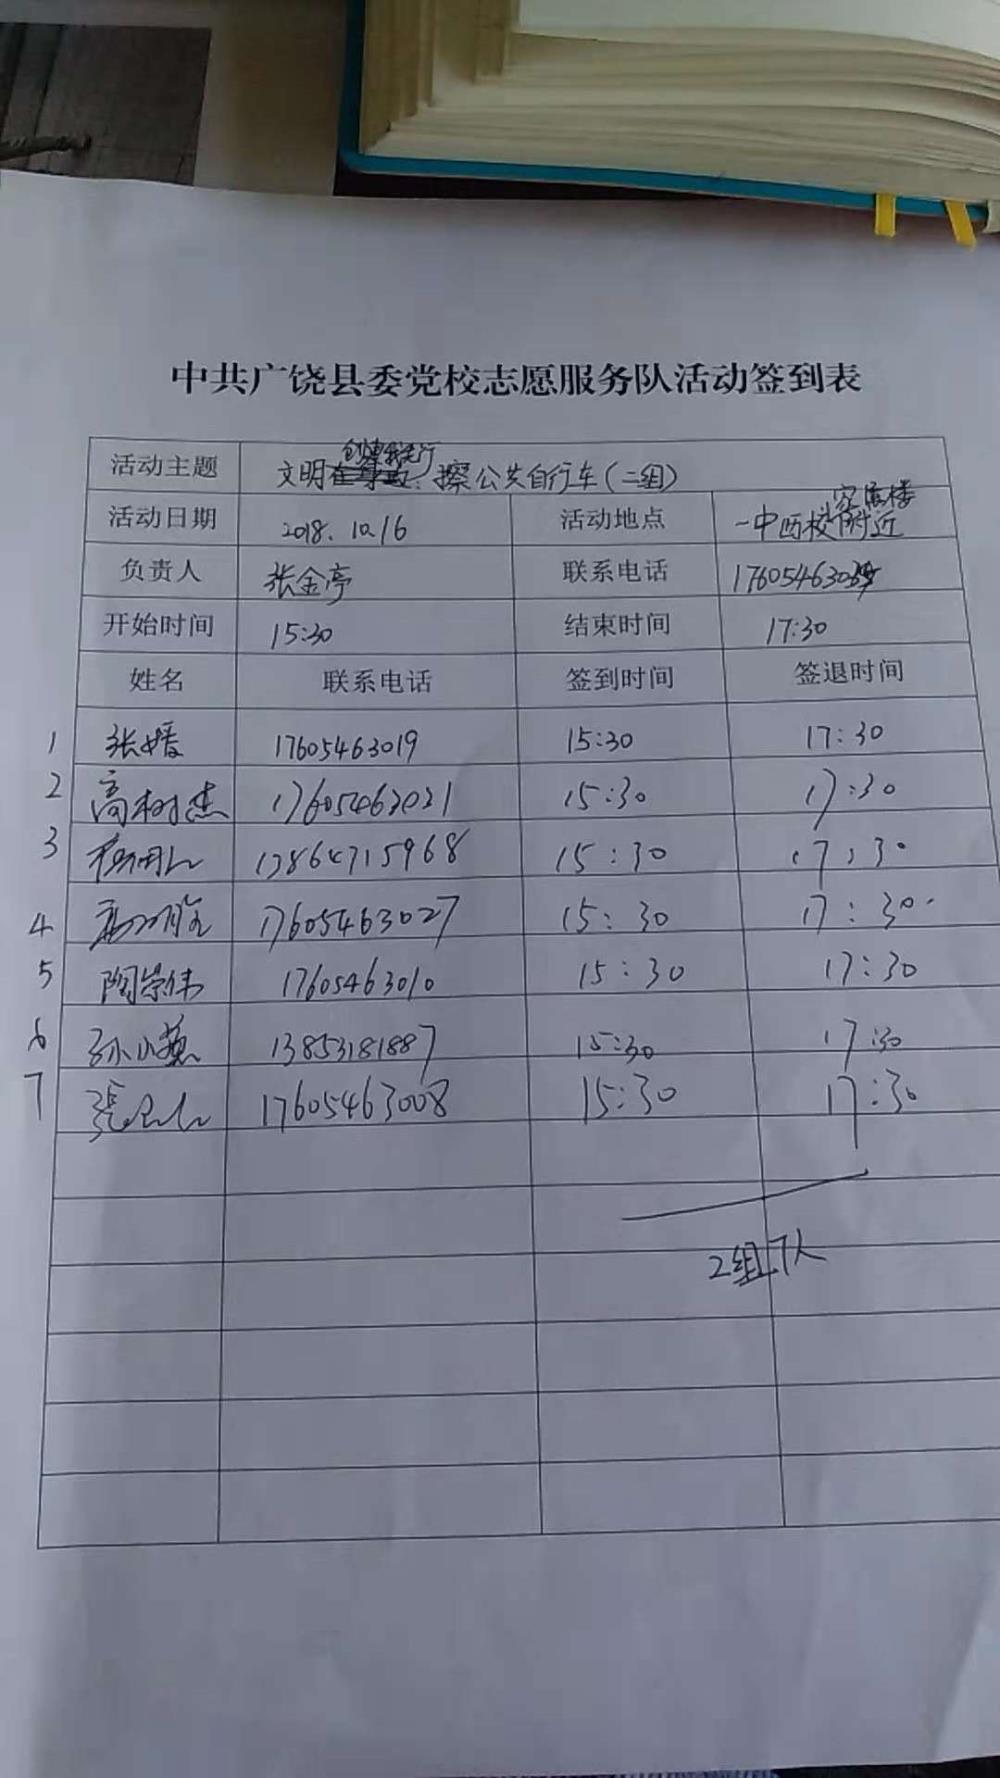 中共广饶县委党校志愿服务队活动签到表
活动主题 文明创建我先行 擦公共自行车(二组)
活动日期 2018.10.16 活动地点 一中西校附近
负责人 张金亭 联系电话 176054630
开始时间 15:30 结束时间 17:30
姓名 联系电话 签到时间 签退时间
1 张婧 17605463019 15:30 17:30
2 高树杰 17605463021 15:30 17:30
3 13864715968 15:30 17:30
4 17605463027 15:30 17:30
5 陶崇伟 17605463010 15:30 17:30
6 孙小燕 13853181887 15:30 17:30
7 张 17605463008 15:30 17:30
2组 7人